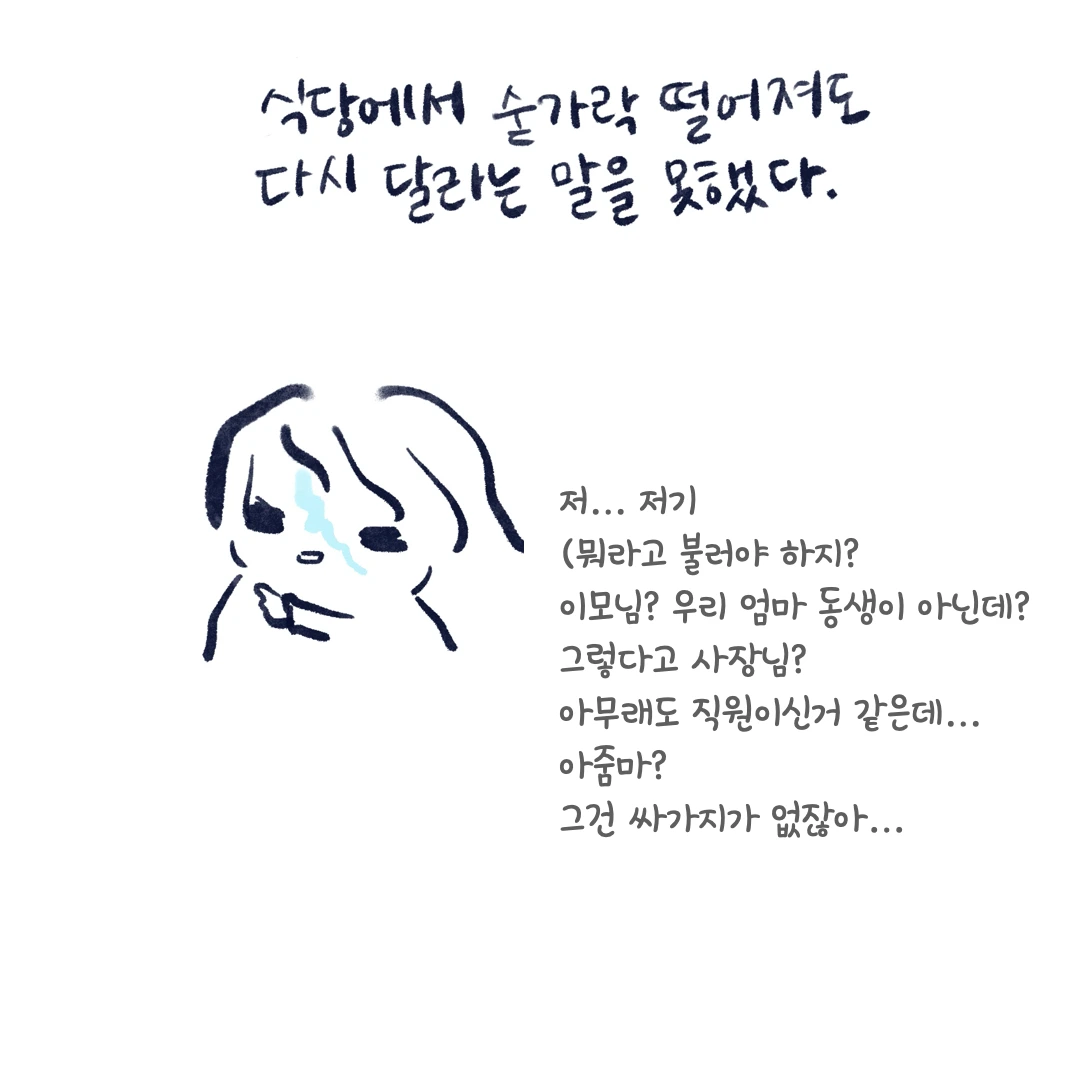 식당에서 숟가락 떨어져도
다시 달라는 말을 못했다.
저... 저기
(뭐라고 불러야 하지?
이모님? 우리 엄마 동생이 아닌데?
그렇다고 사장님?
아무래도 직원이신거 같은데...
아줌마?
그건 싸가지가 없잖아...